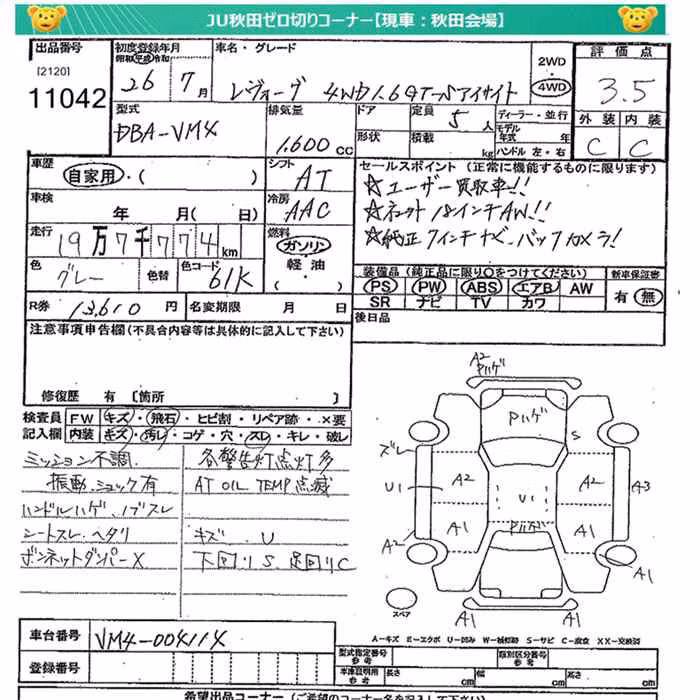 JU秋田ゼロ切りコーナー【現車：秋田会場】
出品番号
[2120]
11042
初度登録年月
昭和 平成 令和
26 年 7 月
車名・グレード
レヴォーグ 4WD 1.6GT-Sアイサイト
2WD
4WD
評価点
3.5
外装 内装
C C
型式
DBA-VM4
排気量
1,600 CC
ドア
形状
定員 5 人
積載 kg
ディーラー・並行
モデル年式 年
ハンドル 左・右
車歴
自家用・( )
シフト
AT
車検
年 月( 日)
冷房
AAC
走行
19万7千774km
燃料
ガソリン
軽油
( )
色
グレー
色替
色コード
61K
R券 13,610 円
名変期限 月 日
セールスポイント（正常に機能するものに限ります）
☆ユーザー買取車!!
☆ネット18インチAW!!
☆純正7インチナビ、バックカメラ!
装備品（純正品に限り〇をつけてください）
新車保証書
PS PW ABS エアB AW
SR ナビ TV カワ
有・無
後日品
注意事項申告欄（不具合内容等は具体的に記入して下さい）
修復歴 有 [箇所 ]
検査員
記入欄
FW キズ・飛石・ヒビ割・リペア跡・×要
内装 キズ・汚レ・コゲ・穴・スレ・キレ・破レ
ミッション不調.
振動、ショック有
ハンドルハゲ、ノブスレ
シートスレ、ヘタリ
ボンネットダンパーX
各警告灯点灯多
AT OIL TEMP点滅
キズ、U
下回りS、足回りC
A2
Pハゲ
Pハゲ
ズレ
S
U1
A2
U1
A2
A3
A1
Pハゲ
A1
A2
A1
A1
A1
スペア
A-キズ E-エクボ U-凹み W-補修跡 S-サビ C-腐食 XX-交換済
車台番号
VM4-004114
登録番号
型式指定番号
参考
類別区分番号
参考
車庫証明用
参考
長さ cm
幅 cm
高さ cm
希望出品コーナー（ご希望のコーナー名を記入して下さい）